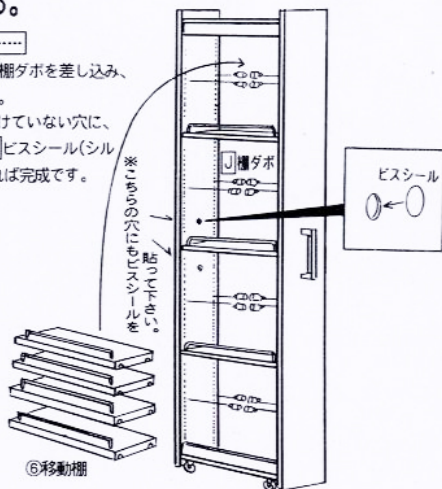 る。
棚ダボを差し込み、
。
けていない穴に、
ビスシール(シル
れば完成です。
※こちらの穴にもビスシールを
貼って下さい。
J棚ダボ
ビスシール
⑥移動棚